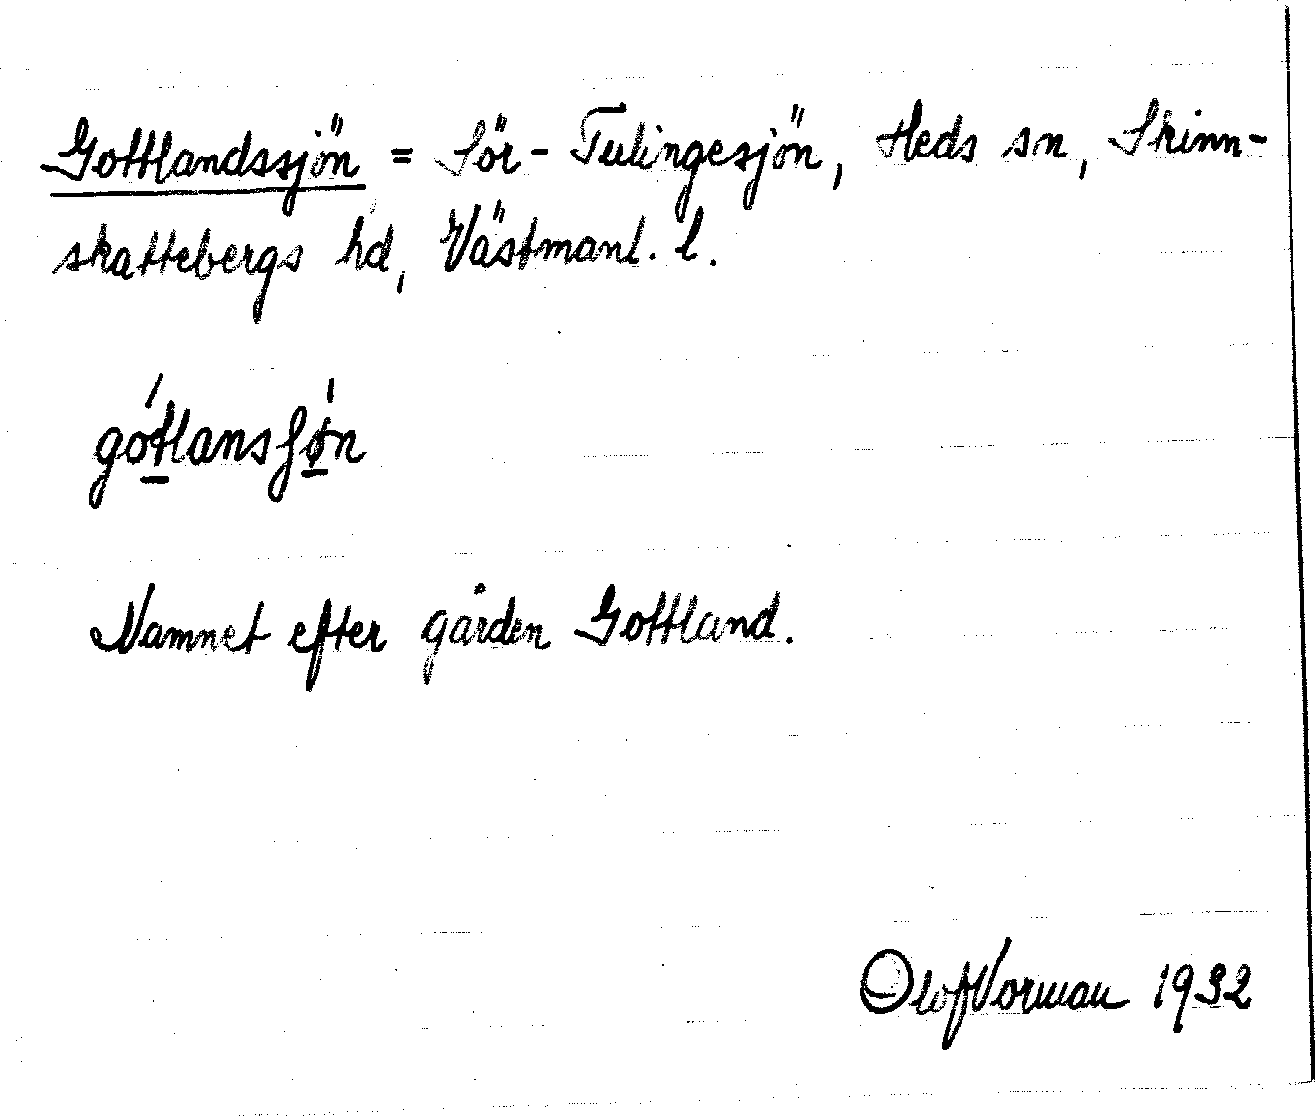 Gottlandssjön = Sör-Tulingesjön, Heds sn, Skinn-
skattebergs hd, Västmanl. l.
gótlansʃøn
Namnet efter gården Gottland.
Olof Norman 1932